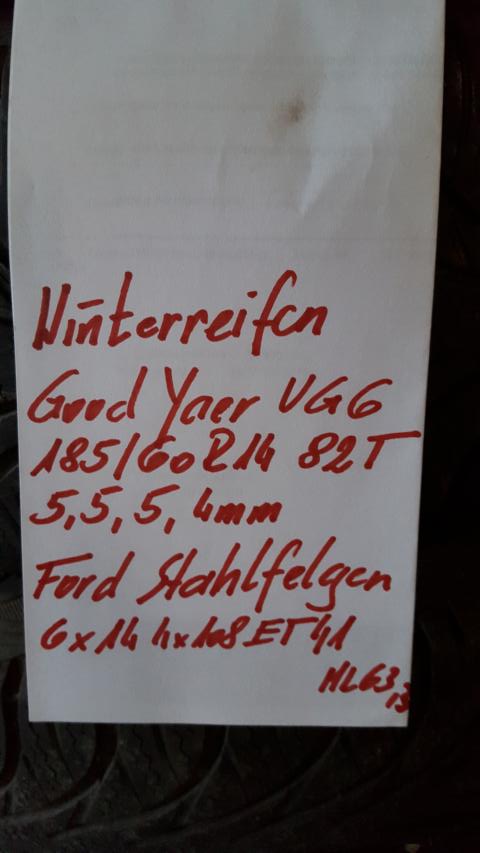 Winterreifen
Good Yaer UG6
185/60R14 82T
5,5,5,4mm
Ford Stahlfelgen
6x14 4x108 ET41
NL63,13